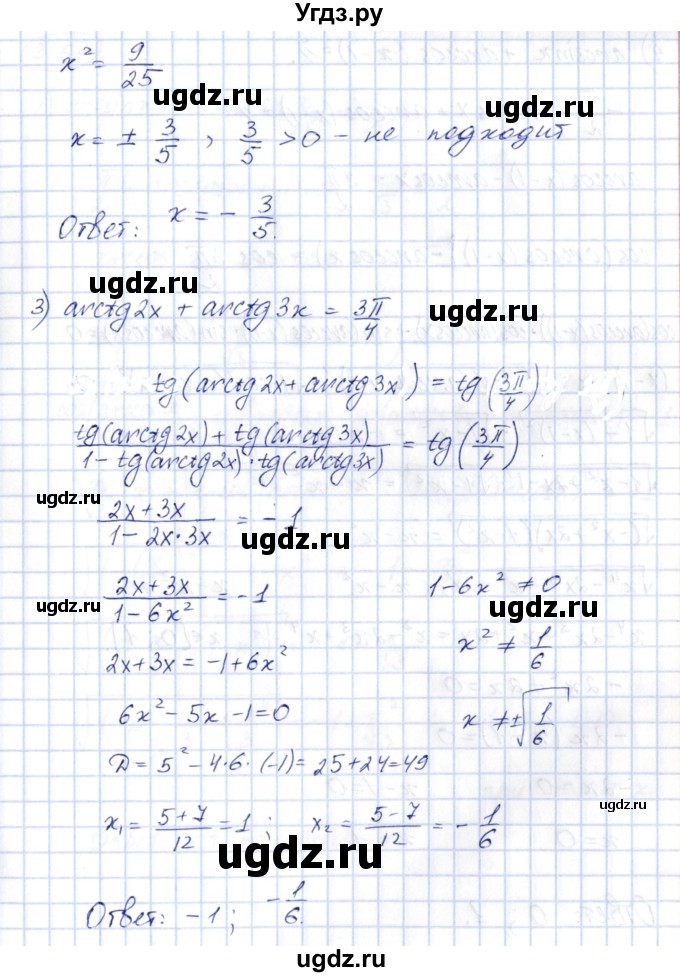 Угдз.ру
x² = 9/25
ugdz.ru
x = ± 3/5 , 3/5 > 0 – не подходит
ugdz.ru ugdz.ru
Ответ: x = – 3/5.
ugdz.ru
3) arctg 2x + arctg 3x = 3π/4 ugdz.ru
tg (arctg 2x + arctg 3x) = tg (3π/4)
ugdz.ru
(tg(arctg 2x) + tg (arctg 3x))/(1 – tg(arctg 2x) · tg (arctg 3x)) = tg (3π/4)
ugdz.ru
(2x + 3x)/(1 – 2x · 3x) = – 1
ugdz.ru
(2x + 3x)/(1 – 6x²) = – 1 1 – 6x² ≠ 0
ugdz.ru ugdz.ru
2x + 3x = –1 + 6x² x² ≠ 1/6
6x² – 5x – 1 = 0 x ≠ ± √(1/6)
ugdz.ru
Д = 5² – 4·6·(-1) = 25 + 24 = 49
ugdz.ru
x₁ = (5+7)/12 = 1 ; x₂ = (5–7)/12 = – 1/6
ugdz.ru
Ответ: –1 ; –1/6.
ugdz.ru